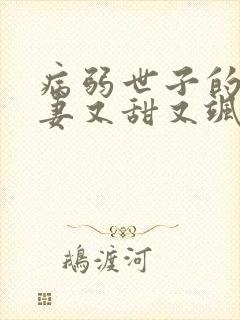 病弱世子的
妻又甜又飒
鹅渡河